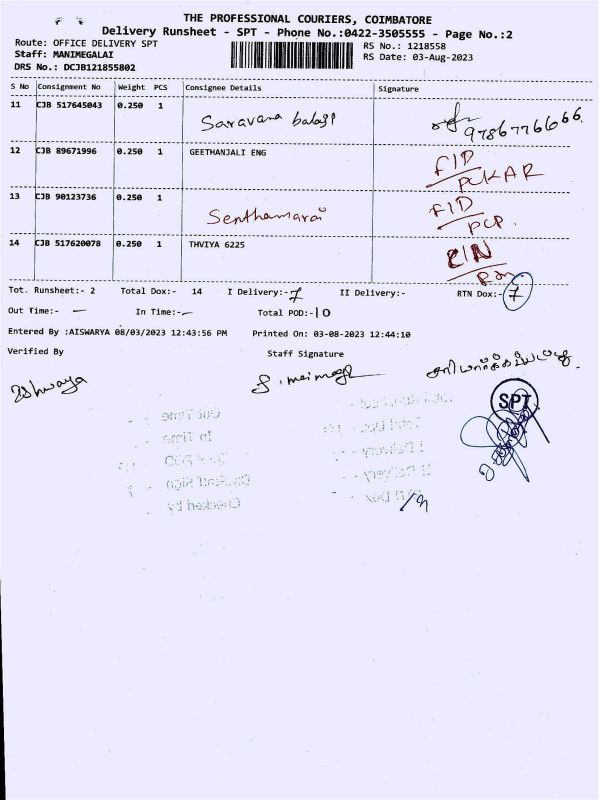 THE PROFESSIONAL COURIERS, COIMBATORE
Delivery Runsheet - SPT - Phone No.:0422-3505555 - Page No.:2
Route: OFFICE DELIVERY SPT RS No.: 1218558
Staff: MANIMEGALAI RS Date: 03-Aug-2023
DRS No.: DCJB121855802
S No Consignment No Weight PCS Consignee Details Signature
11 CJB 517645043 0.250 1 Saravana balaji 9786776666
12 CJB 89671996 0.250 1 GEETHANJALI ENG FID
13 CJB 90123736 0.250 1 Senthamarai FID
PCP
14 CJB 517620078 0.250 1 THVIYA 6225
Tot. Runsheet:- 2 Total Dox:- 14 I Delivery:-7 II Delivery:- RTN Dox:- 7
Out Time:- — In Time:- — Total POD:-10
Entered By :AISWARYA 08/03/2023 12:43:56 PM Printed On: 03-08-2023 12:44:10
Verified By Staff Signature
SPT
Out Time -
Total Dox -
In Time -
I Delivery -
II Delivery -
Checked by -